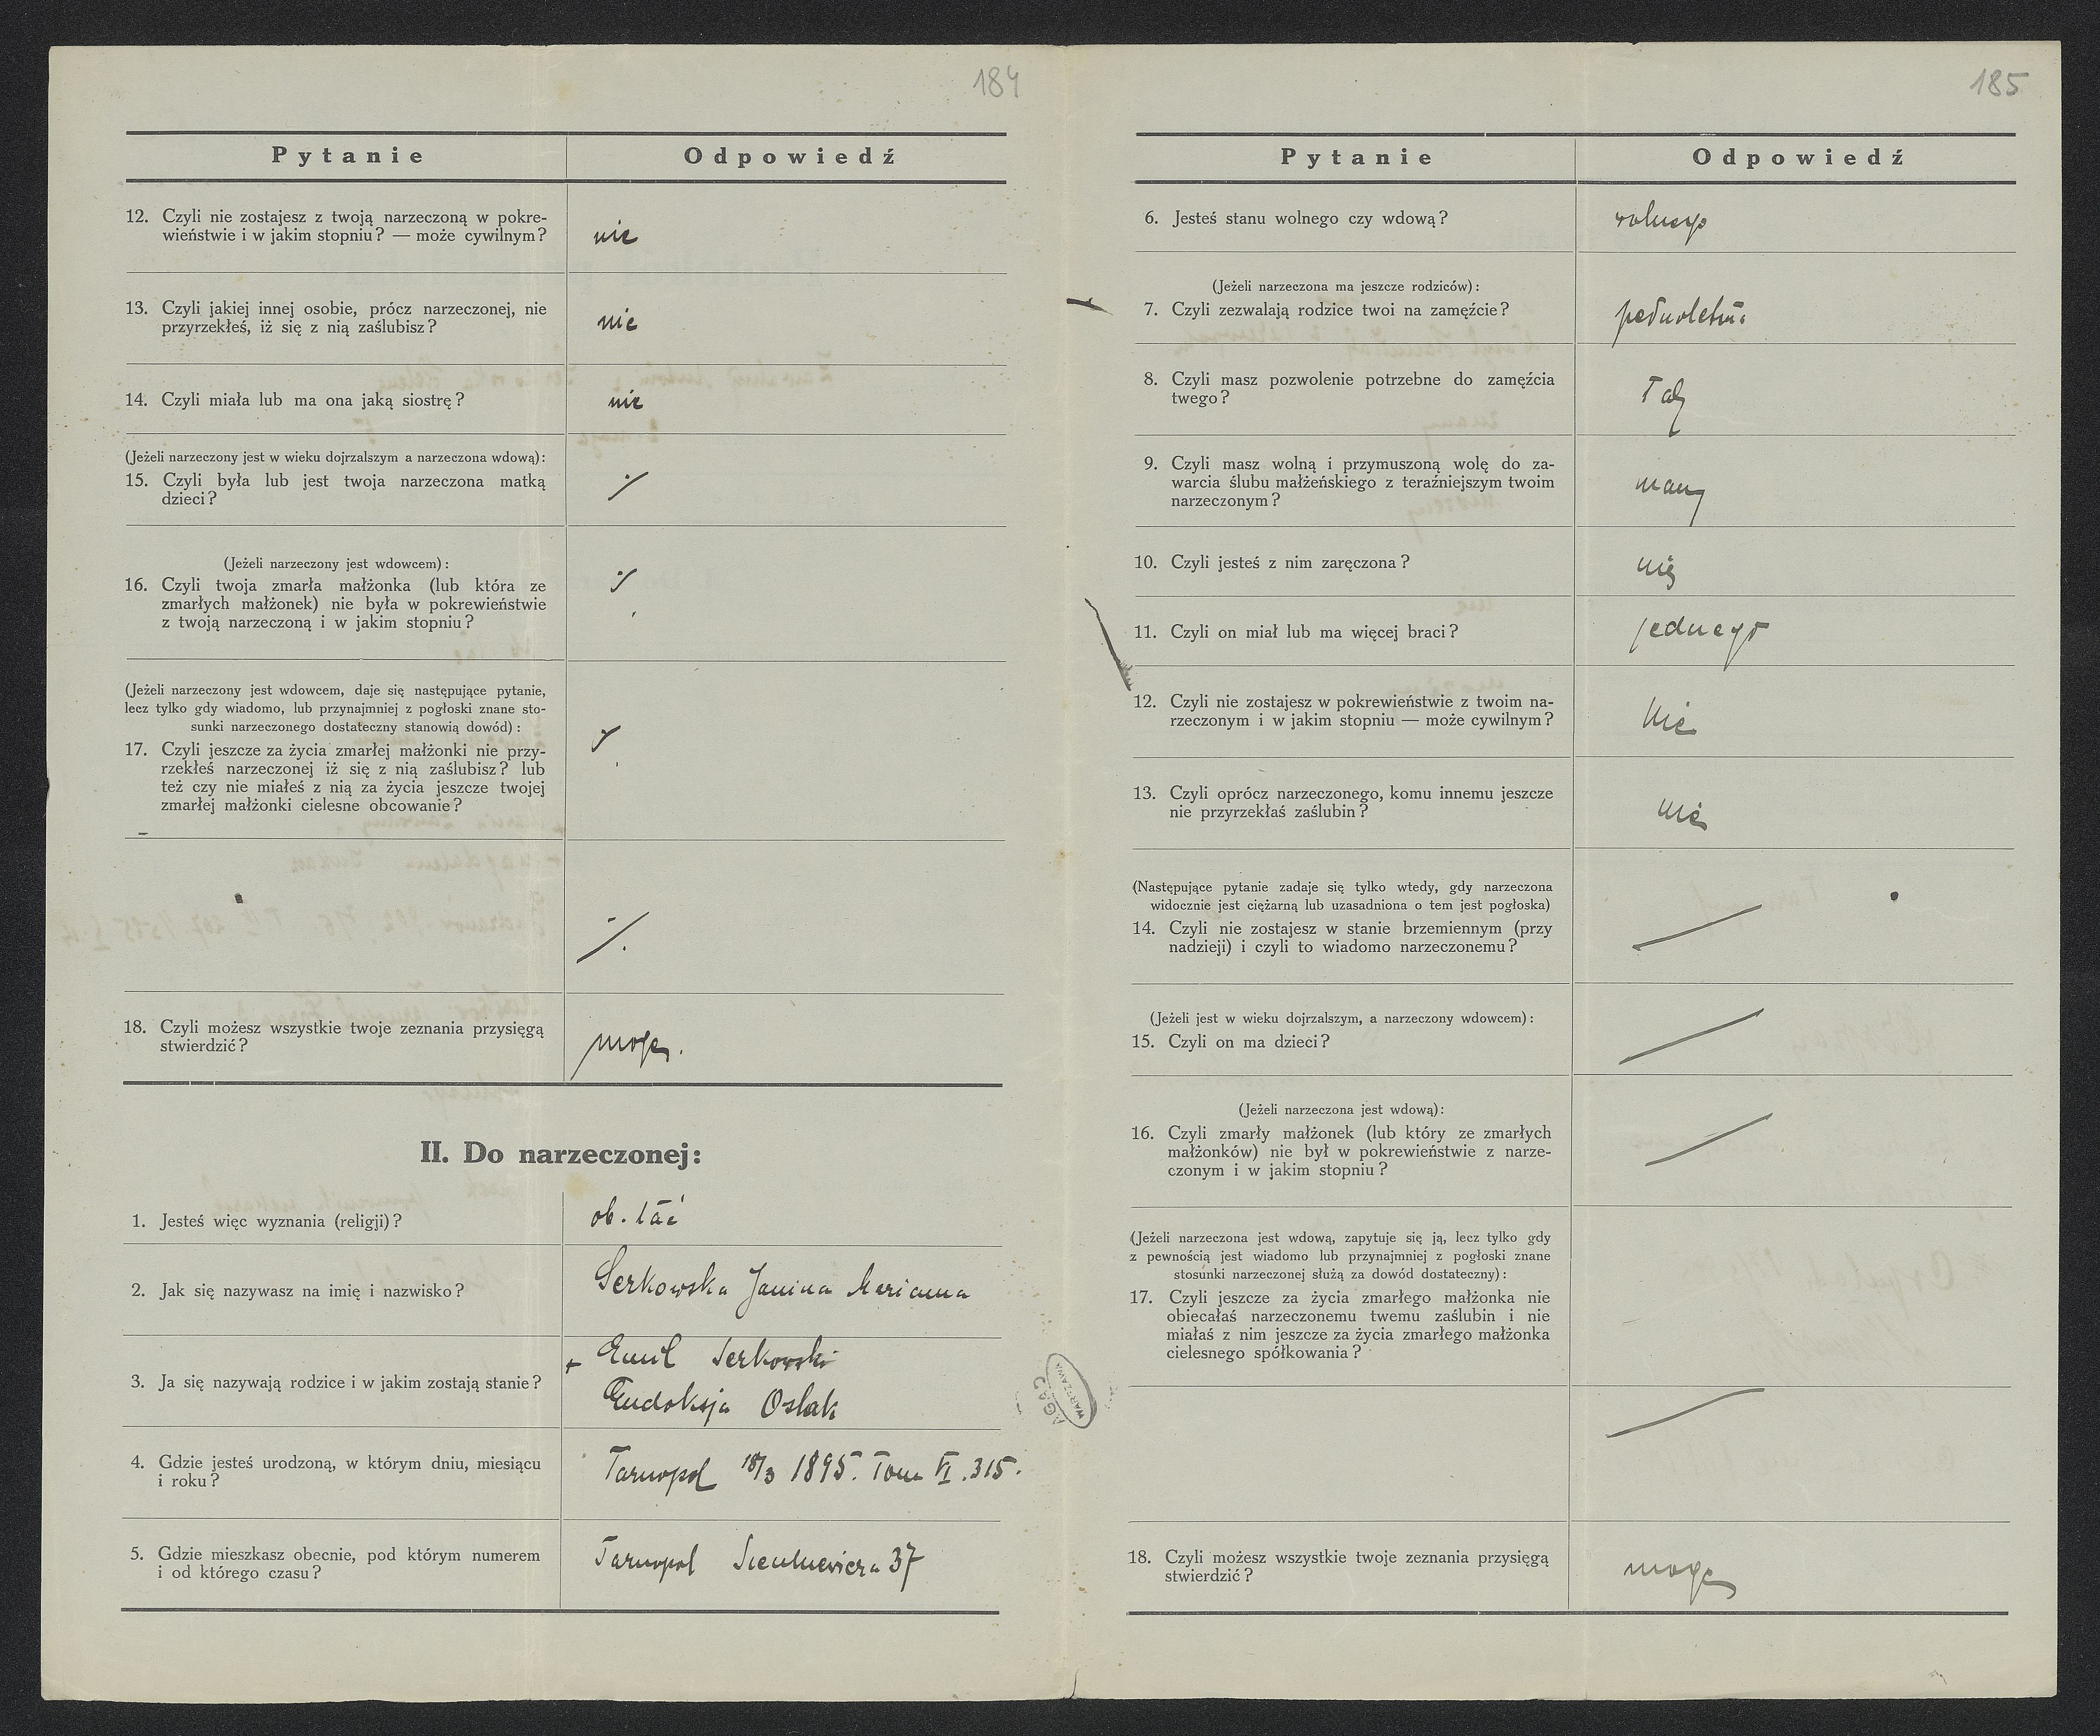 184
Pytanie
Odpowiedź
12. Czyli nie zostajesz z twoją narzeczoną w pokre-
wieństwie i w jakim stopniu? — może cywilnym?
nie
13. Czyli jakiej innej osobie, prócz narzeczonej, nie
przyrzekłeś, iż się z nią zaślubisz?
nie
14. Czyli miała lub ma ona jaką siostrę?
nie
(Jeżeli narzeczony jest w wieku dojrzalszym a narzeczona wdową):
15. Czyli była lub jest twoja narzeczona matką
dzieci?
(Jeżeli narzeczony jest wdowcem):
16. Czyli twoja zmarła małżonka (lub która ze
zmarłych małżonek) nie była w pokrewieństwie
z twoją narzeczoną i w jakim stopniu?
(Jeżeli narzeczony jest wdowcem, daje się następujące pytanie,
lecz tylko gdy wiadomo, lub przynajmniej z pogłoski znane sto-
sunki narzeczonego dostateczny stanowią dowód):
17. Czyli jeszcze za życia zmarłej małżonki nie przy-
rzekłeś narzeczonej iż się z nią zaślubisz? lub
też czy nie miałeś z nią za życia jeszcze twojej
zmarłej małżonki cielesne obcowanie?
18. Czyli możesz wszystkie twoje zeznania przysięgą
stwierdzić?
mogę.
II. Do narzeczonej:
1. Jesteś więc wyznania (religji)?
ob. łać
2. Jak się nazywasz na imię i nazwisko?
Serkowska Janina Marianna
3. Ja się nazywają rodzice i w jakim zostają stanie?
+ Emil Serkowski
Eudoksja Oslak
4. Gdzie jesteś urodzoną, w którym dniu, miesiącu
i roku?
Tarnopol 18/3 1895. Tom VI. 315.
5. Gdzie mieszkasz obecnie, pod którym numerem
i od którego czasu?
Tarnopol Sienkiewicza 37
AGAD
WARSZAWA
185
Pytanie
Odpowiedź
6. Jesteś stanu wolnego czy wdową?
wolnego
(Jeżeli narzeczona ma jeszcze rodziców):
7. Czyli zezwalają rodzice twoi na zamęźcie?
pełnoletnia
8. Czyli masz pozwolenie potrzebne do zamęźcia
twego?
Tak
9. Czyli masz wolną i przymuszoną wolę do za-
warcia ślubu małżeńskiego z teraźniejszym twoim
narzeczonym?
mam
10. Czyli jesteś z nim zaręczona?
nie
11. Czyli on miał lub ma więcej braci?
jednego
12. Czyli nie zostajesz w pokrewieństwie z twoim na-
rzeczonym i w jakim stopniu — może cywilnym?
Nie
13. Czyli oprócz narzeczonego, komu innemu jeszcze
nie przyrzekłaś zaślubin?
nie
(Następujące pytanie zadaje się tylko wtedy, gdy narzeczona
widocznie jest ciężarną lub uzasadniona o tem jest pogłoska)
14. Czyli nie zostajesz w stanie brzemiennym (przy
nadzieji) i czyli to wiadomo narzeczonemu?
(Jeżeli jest w wieku dojrzalszym, a narzeczony wdowcem):
15. Czyli on ma dzieci?
(Jeżeli narzeczona jest wdową):
16. Czyli zmarły małżonek (lub który ze zmarłych
małżonków) nie był w pokrewieństwie z narze-
czonym i w jakim stopniu?
(Jeżeli narzeczona jest wdową, zapytuje się ją, lecz tylko gdy
z pewnością jest wiadomo lub przynajmniej z pogłoski znane
stosunki narzeczonej służą za dowód dostateczny):
17. Czyli jeszcze za życia zmarłego małżonka nie
obiecałaś narzeczonemu twemu zaślubin i nie
miałaś z nim jeszcze za życia zmarłego małżonka
cielesnego spółkowania?
18. Czyli możesz wszystkie twoje zeznania przysięgą
stwierdzić?
mogę